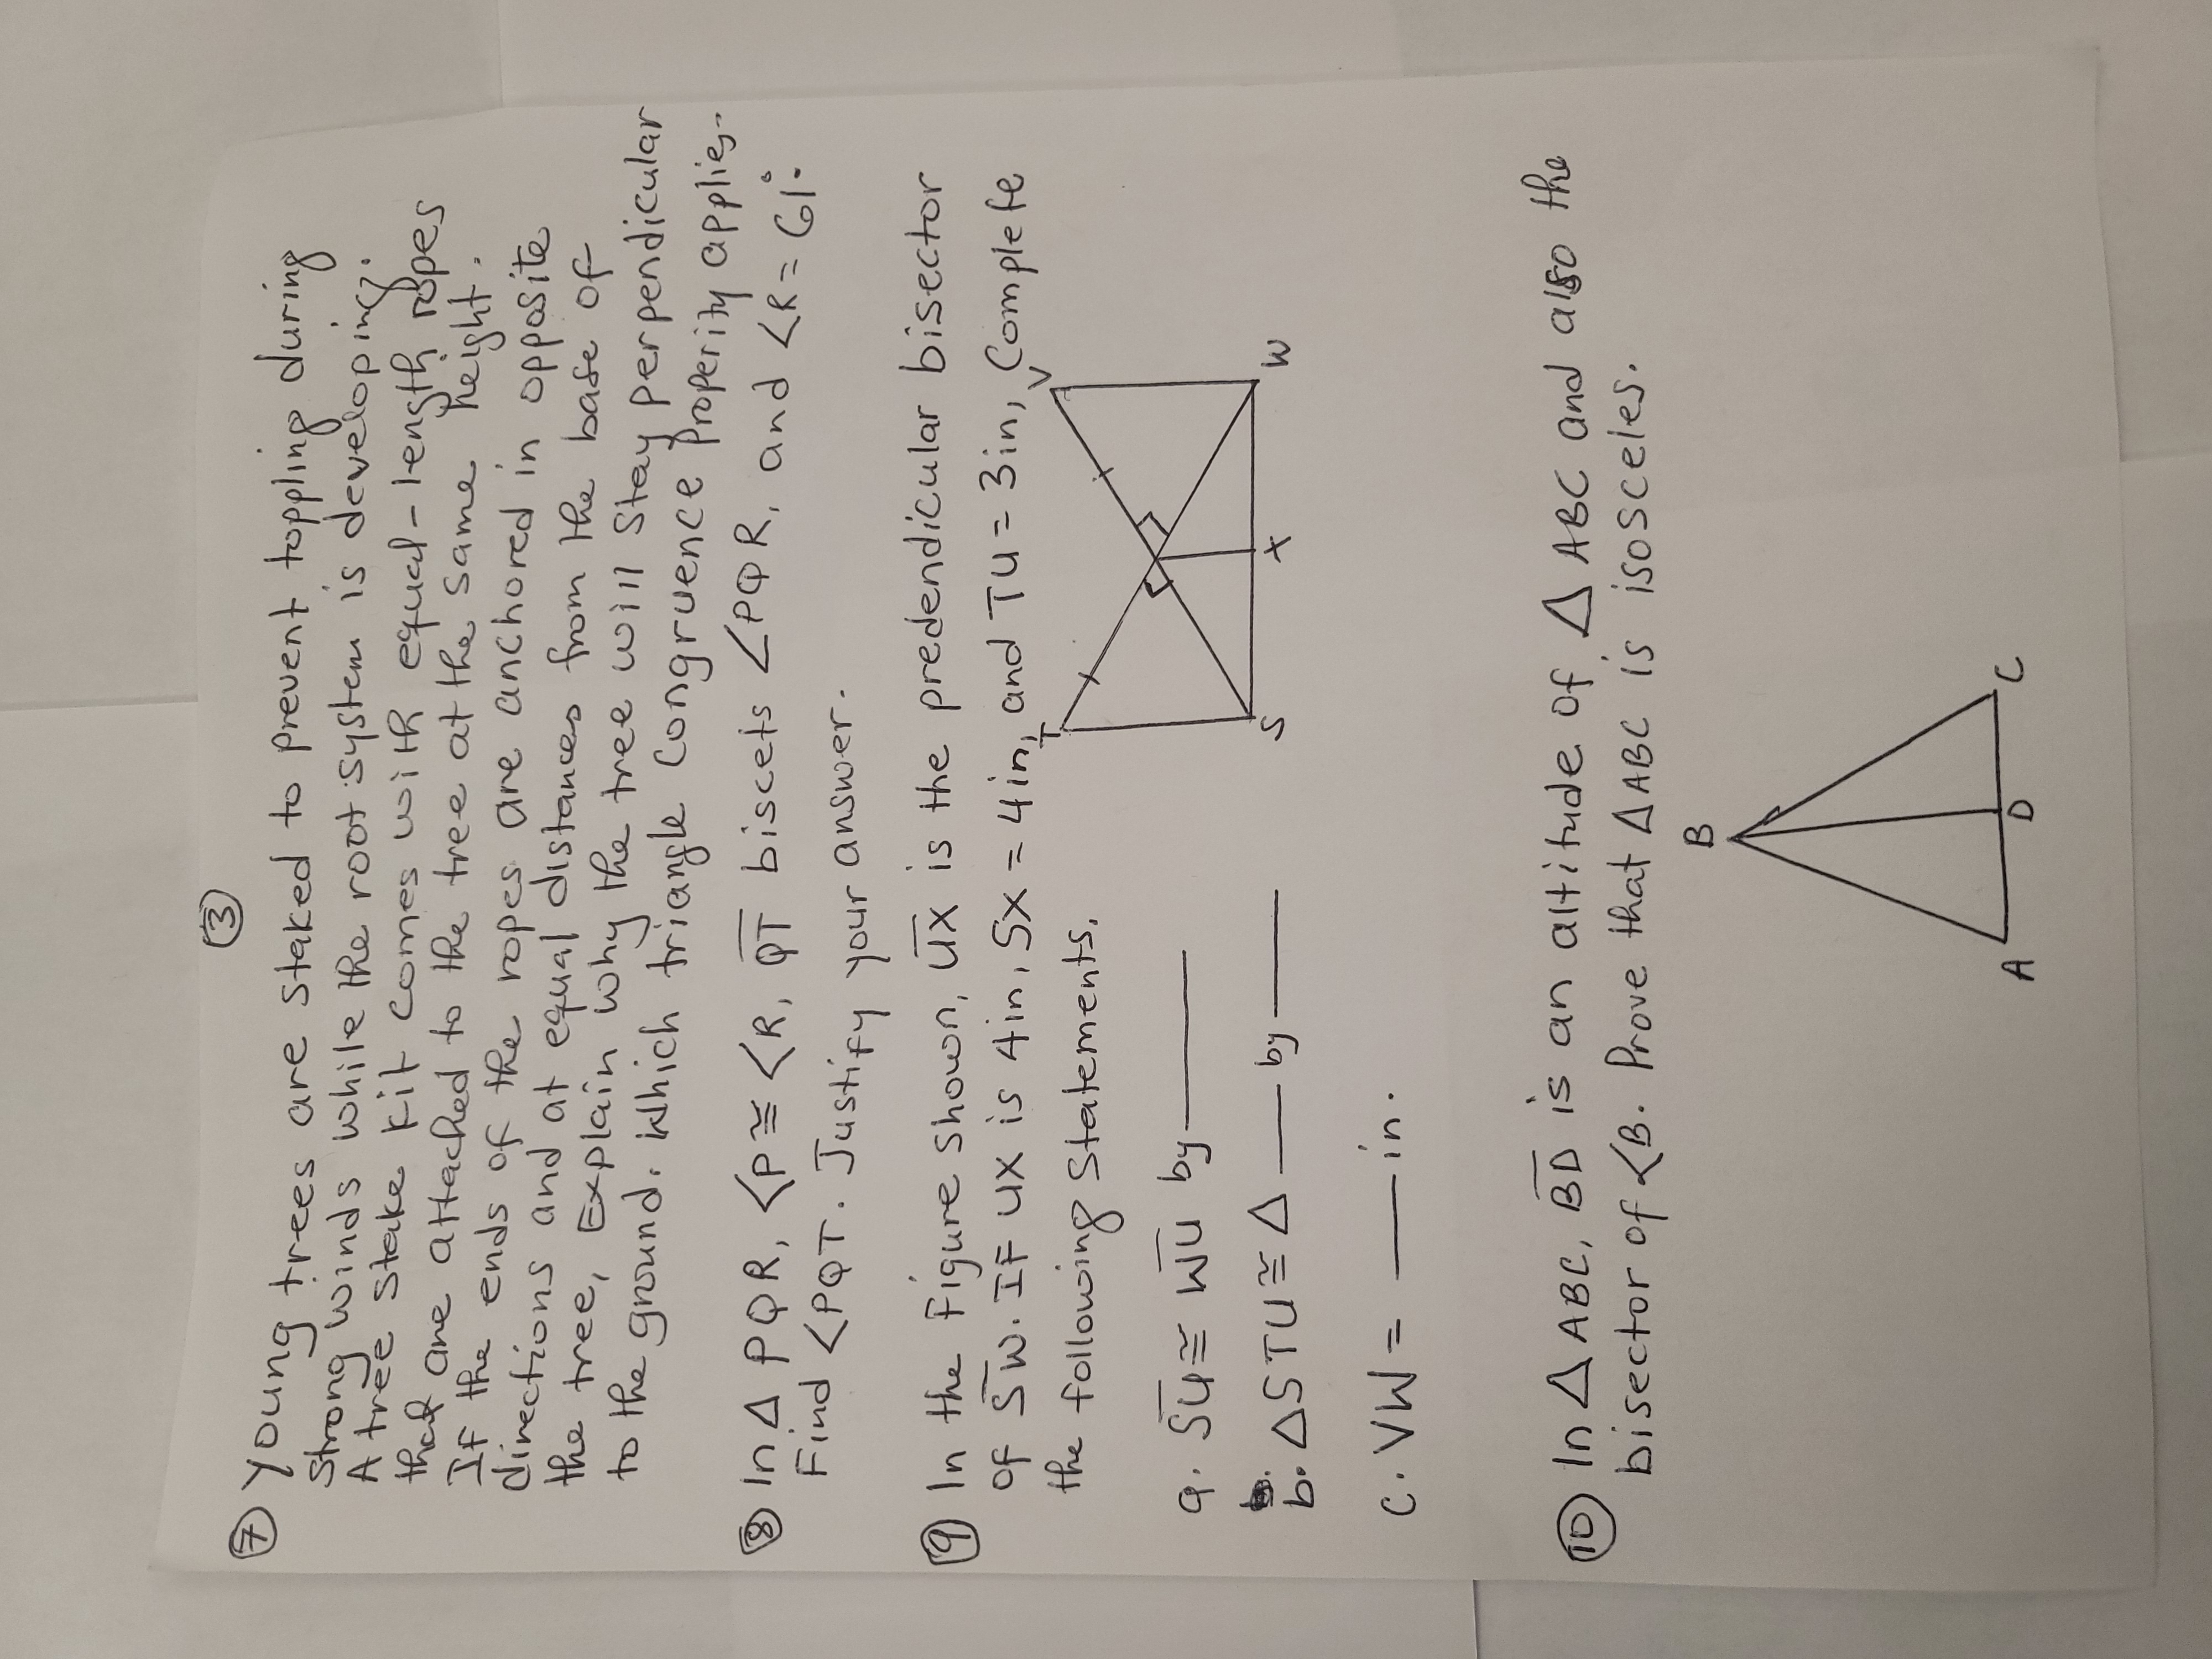 ③
⑦ Young trees are staked to prevent toppling during
strong winds while the root system is developing.
A tree stake kit comes with equal-length ropes
that are attached to the tree at the same height.
If the ends of the ropes are anchored in opposite
directions and at equal distances from the base of
the tree, Explain why the tree will stay perpendicular
to the ground. Which triangle congruence Properity applies.
⑧ In △ PQR, <P ≅ <R, Q̅T̅ biscets ∠PQR, and <R = 61°.
Find <PQT. Justify your answer.
⑨ In the Figure shown, U̅X̅ is the predendicular bisector
of S̅W̅. IF UX is 4in, SX = 4in, and TU = 3in, Complete
the following statements.
T V
a. S̅U̅ ≅ W̅U̅ by ______
b. △STU ≅ △ ____ by ______
S X W
c. VW = ____ in.
⑩ In △ ABC, B̅D̅ is an altitude of △ ABC and also the
bisector of <B. Prove that △ABC is isosceles.
B
A D C